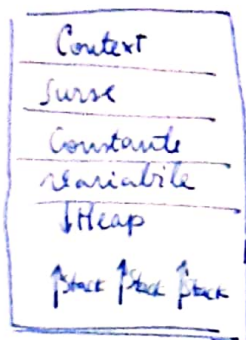 Context
Surse
Constante
Variabile
↓Heap
↑Stack ↑Stack ↑Stack